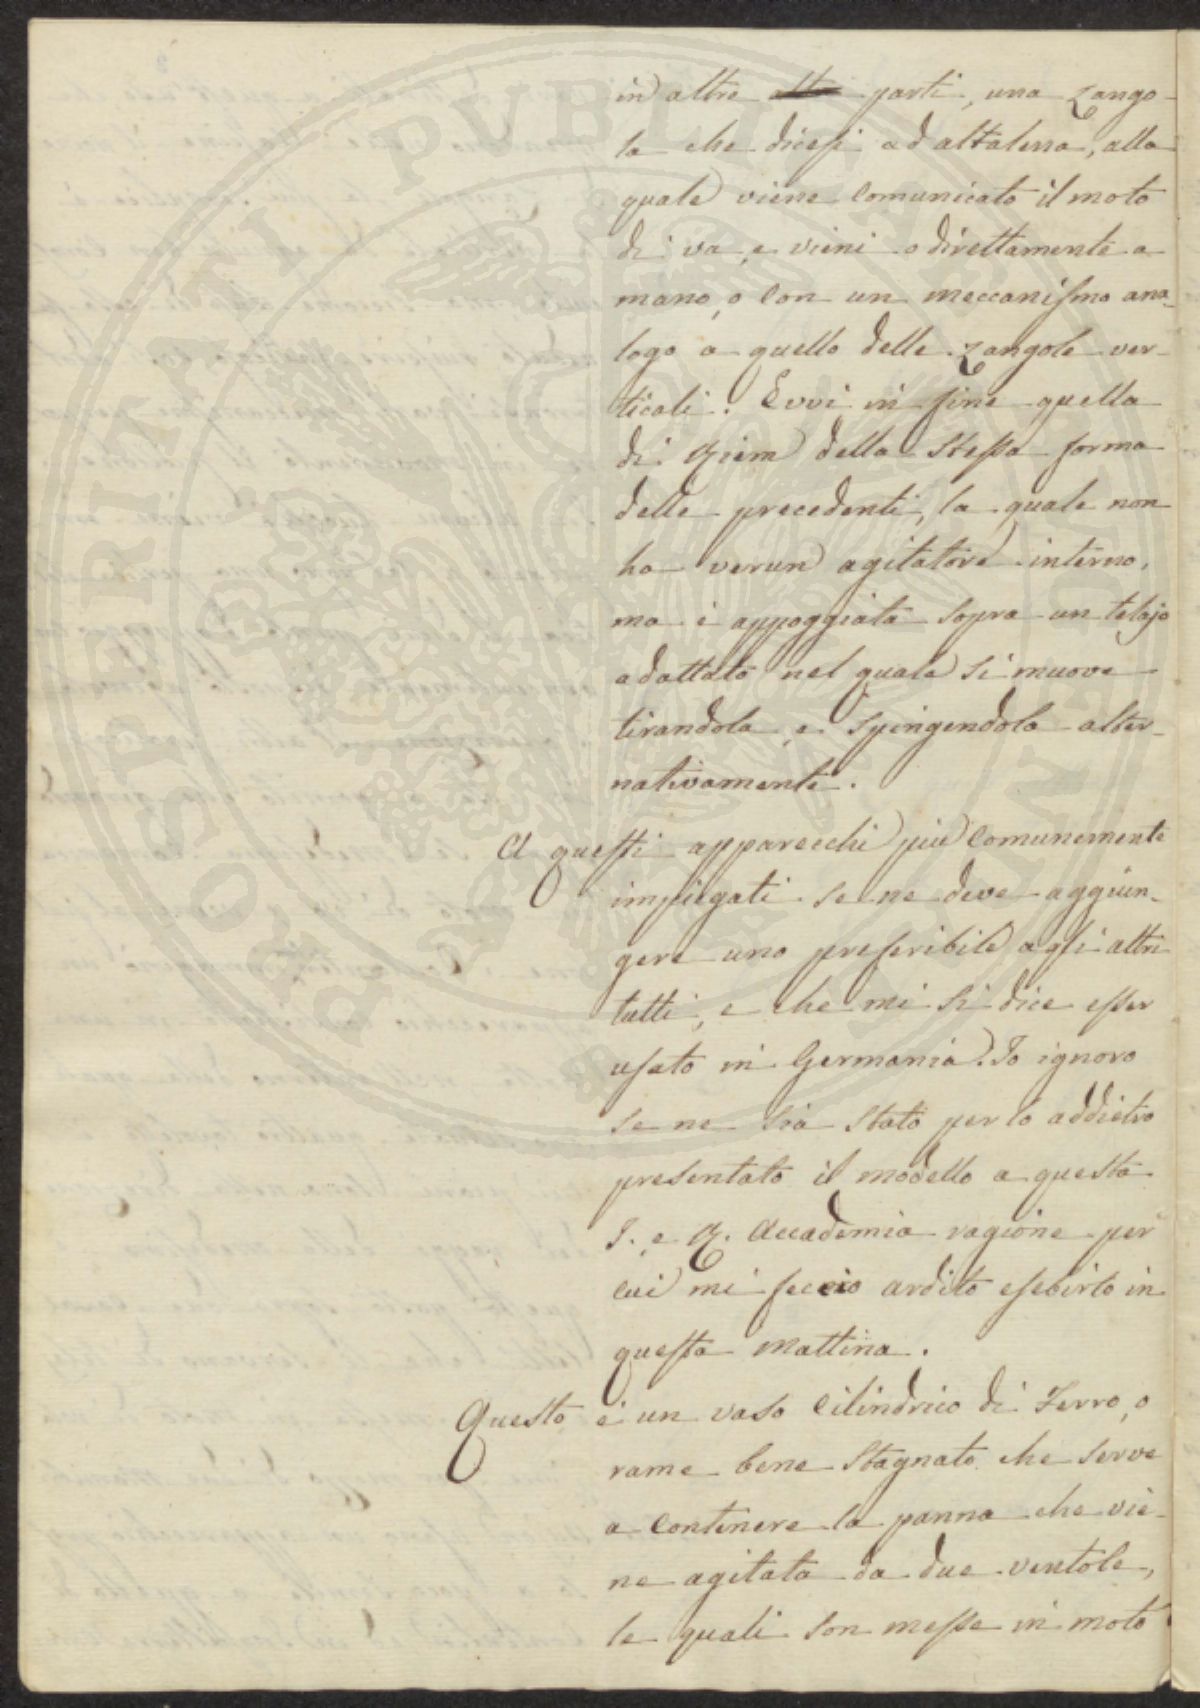 in altre alte parti, una zango-
la che dicesi ad altalena, alla
quale viene comunicato il moto
di va, e vieni o direttamente a
mano, o con un meccanismo ana-
logo a quello delle zangole ver-
ticali. Evvi in fine quella
di della stessa forma
delle precedenti, la quale non
ha verun agitatore interno,
ma è appoggiata sopra un telajo
adattato nel quale si muove
tirandola, e spingendola alter-
nativamente.
A questi apparecchi più comunemente
impiegati se ne deve aggiun-
gere uno preferibile agli altri
tutti, e che mi si dice esser
usato in Germania. Io ignoro
se ne sia stato per lo addietro
presentato il modello a questa
I. e R. Accademia ragione per
cui mi feccio ardito esebirlo in
questa mattina.
Questo è un vaso cilindrico di Ferro, o
rame bene stagnato che serve
a contenere la panna che vie-
ne agitata da due ventole,
le quali son messe in moto
PROSPERITATI PVBLICAE